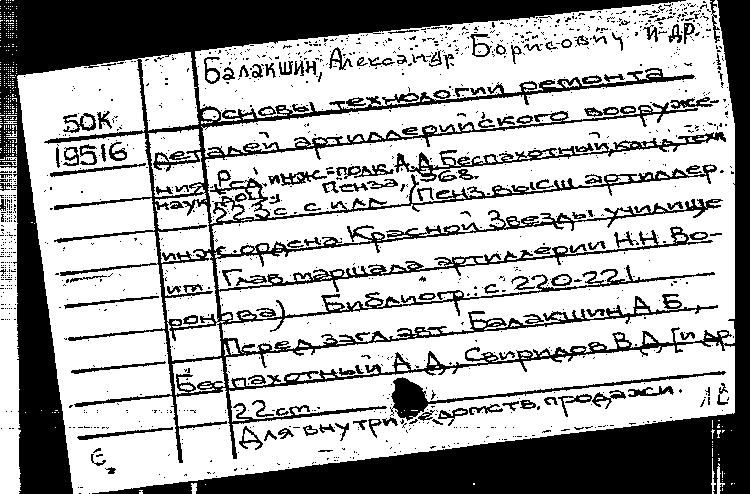 Балакшин, Александр Борисович и др.
50К
Основы технологии ремонта
19516
деталей артиллерийского вооруже-
ния. Ред. инж-полк. А. Д. Беспахотный, канд. техн.
наук Пенза, 1968.
223 с. с илл. (Пенз. высш. артиллер.
инж. ордена Красной Звезды училище
им. Глав. маршала артиллерии Н.Н. Во-
ронова) Библиогр.: с. 220-221.
Перед загл. авт.: Балакшин, А.Б.,
Беспахотный А.Д., Свиридов В.Д. [и др]
22 ст.
Для внутри домств. продажи.